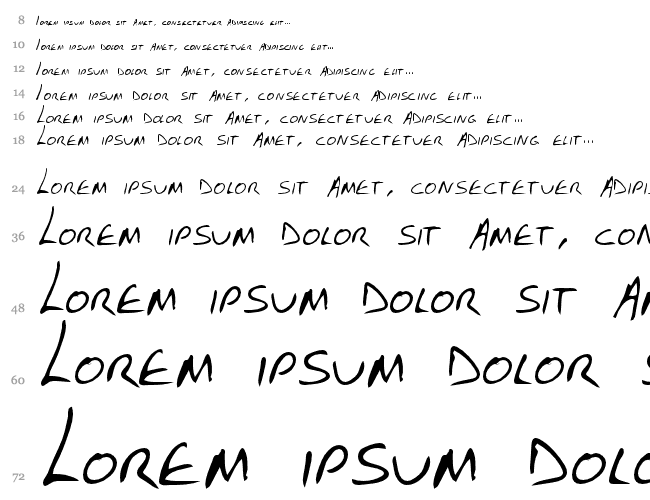 8 Lorem ipsum Dolor sit Amet, consectetuer Adipiscing elit...
10 Lorem ipsum Dolor sit Amet, consectetuer Adipiscing elit...
12 Lorem ipsum Dolor sit Amet, consectetuer Adipiscing elit...
14 Lorem ipsum Dolor sit Amet, consectetuer Adipiscing elit...
16 Lorem ipsum Dolor sit Amet, consectetuer Adipiscing elit...
18 Lorem ipsum Dolor sit Amet, consectetuer Adipiscing elit...
24 Lorem ipsum Dolor sit Amet, consectetuer Adipi
36 Lorem ipsum Dolor sit Amet, con
48 Lorem ipsum Dolor sit Am
60 Lorem ipsum Dolor s
72 Lorem ipsum Dolo